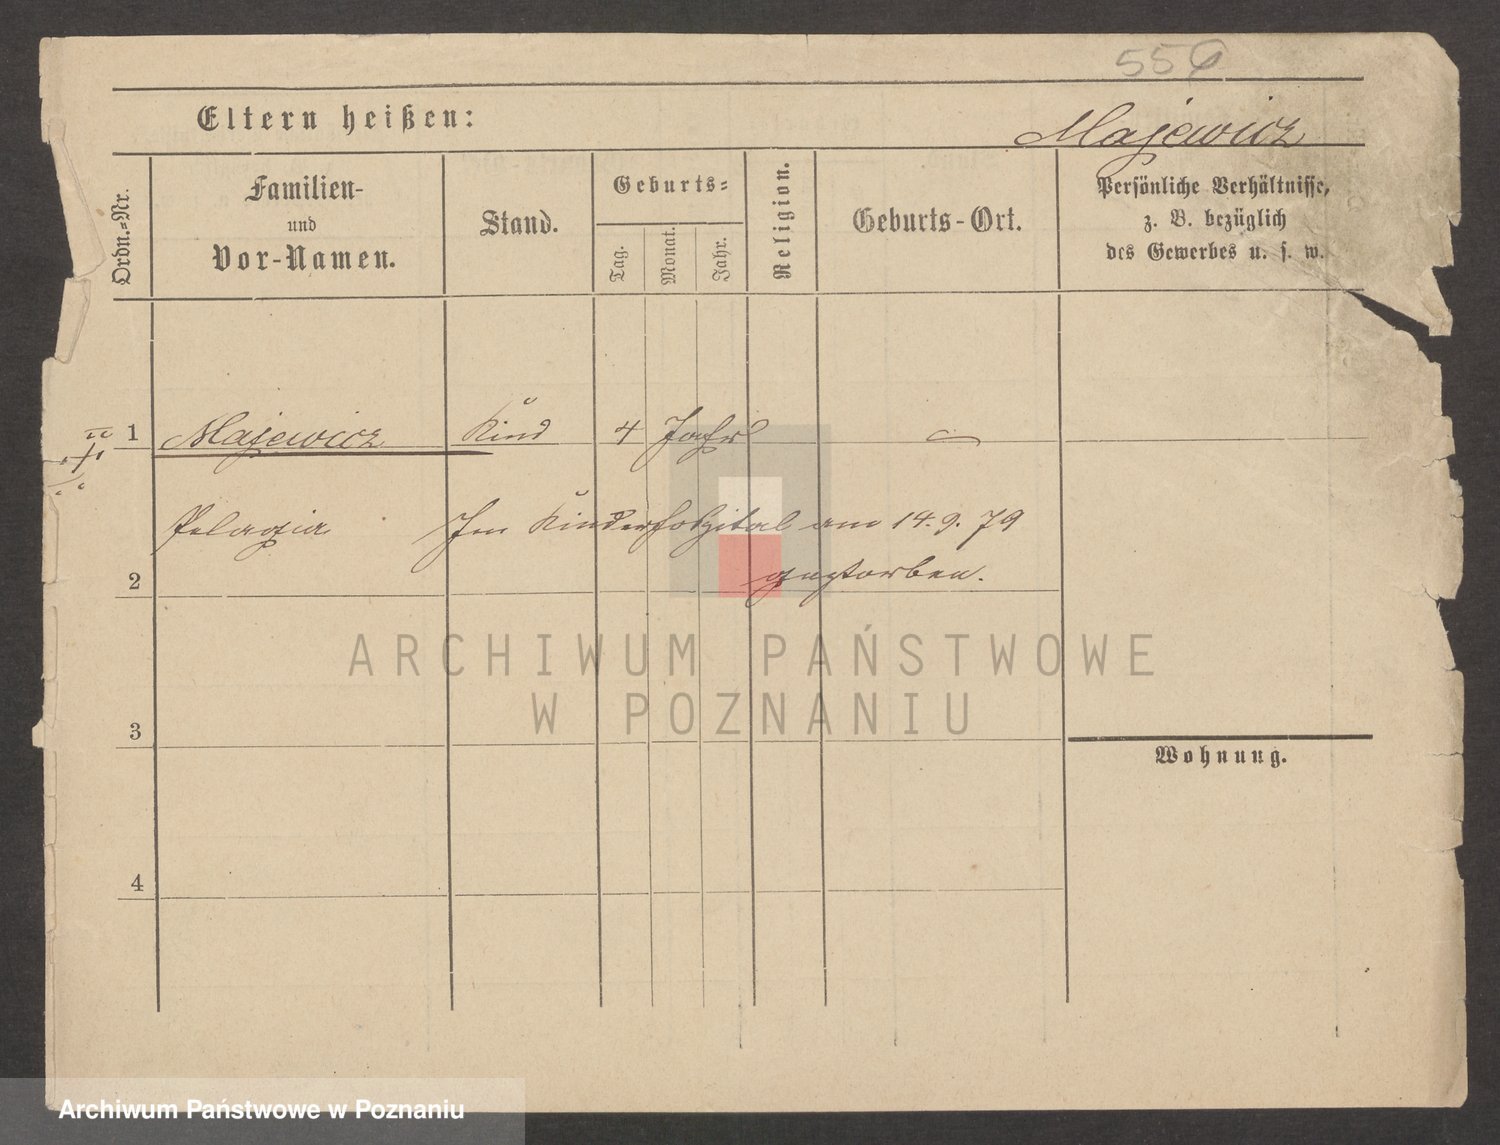 556
Eltern heißen:
Majewicz
Ordn.-Nr.
Familien-
und
Vor-Namen.
Stand.
Geburts-
Tag.
Monat.
Jahr.
Religion.
Geburts-Ort.
Persönliche Verhältnisse,
z. B. bezüglich
des Gewerbes u. s. w.
1 Majewicz Kind 4 Jahr
Pelagia Im Kinderhospital am 14.9.79
gestorben.
2
3
Wohnung.
4
ARCHIWUM PAŃSTWOWE
W POZNANIU
Archiwum Państwowe w Poznaniu